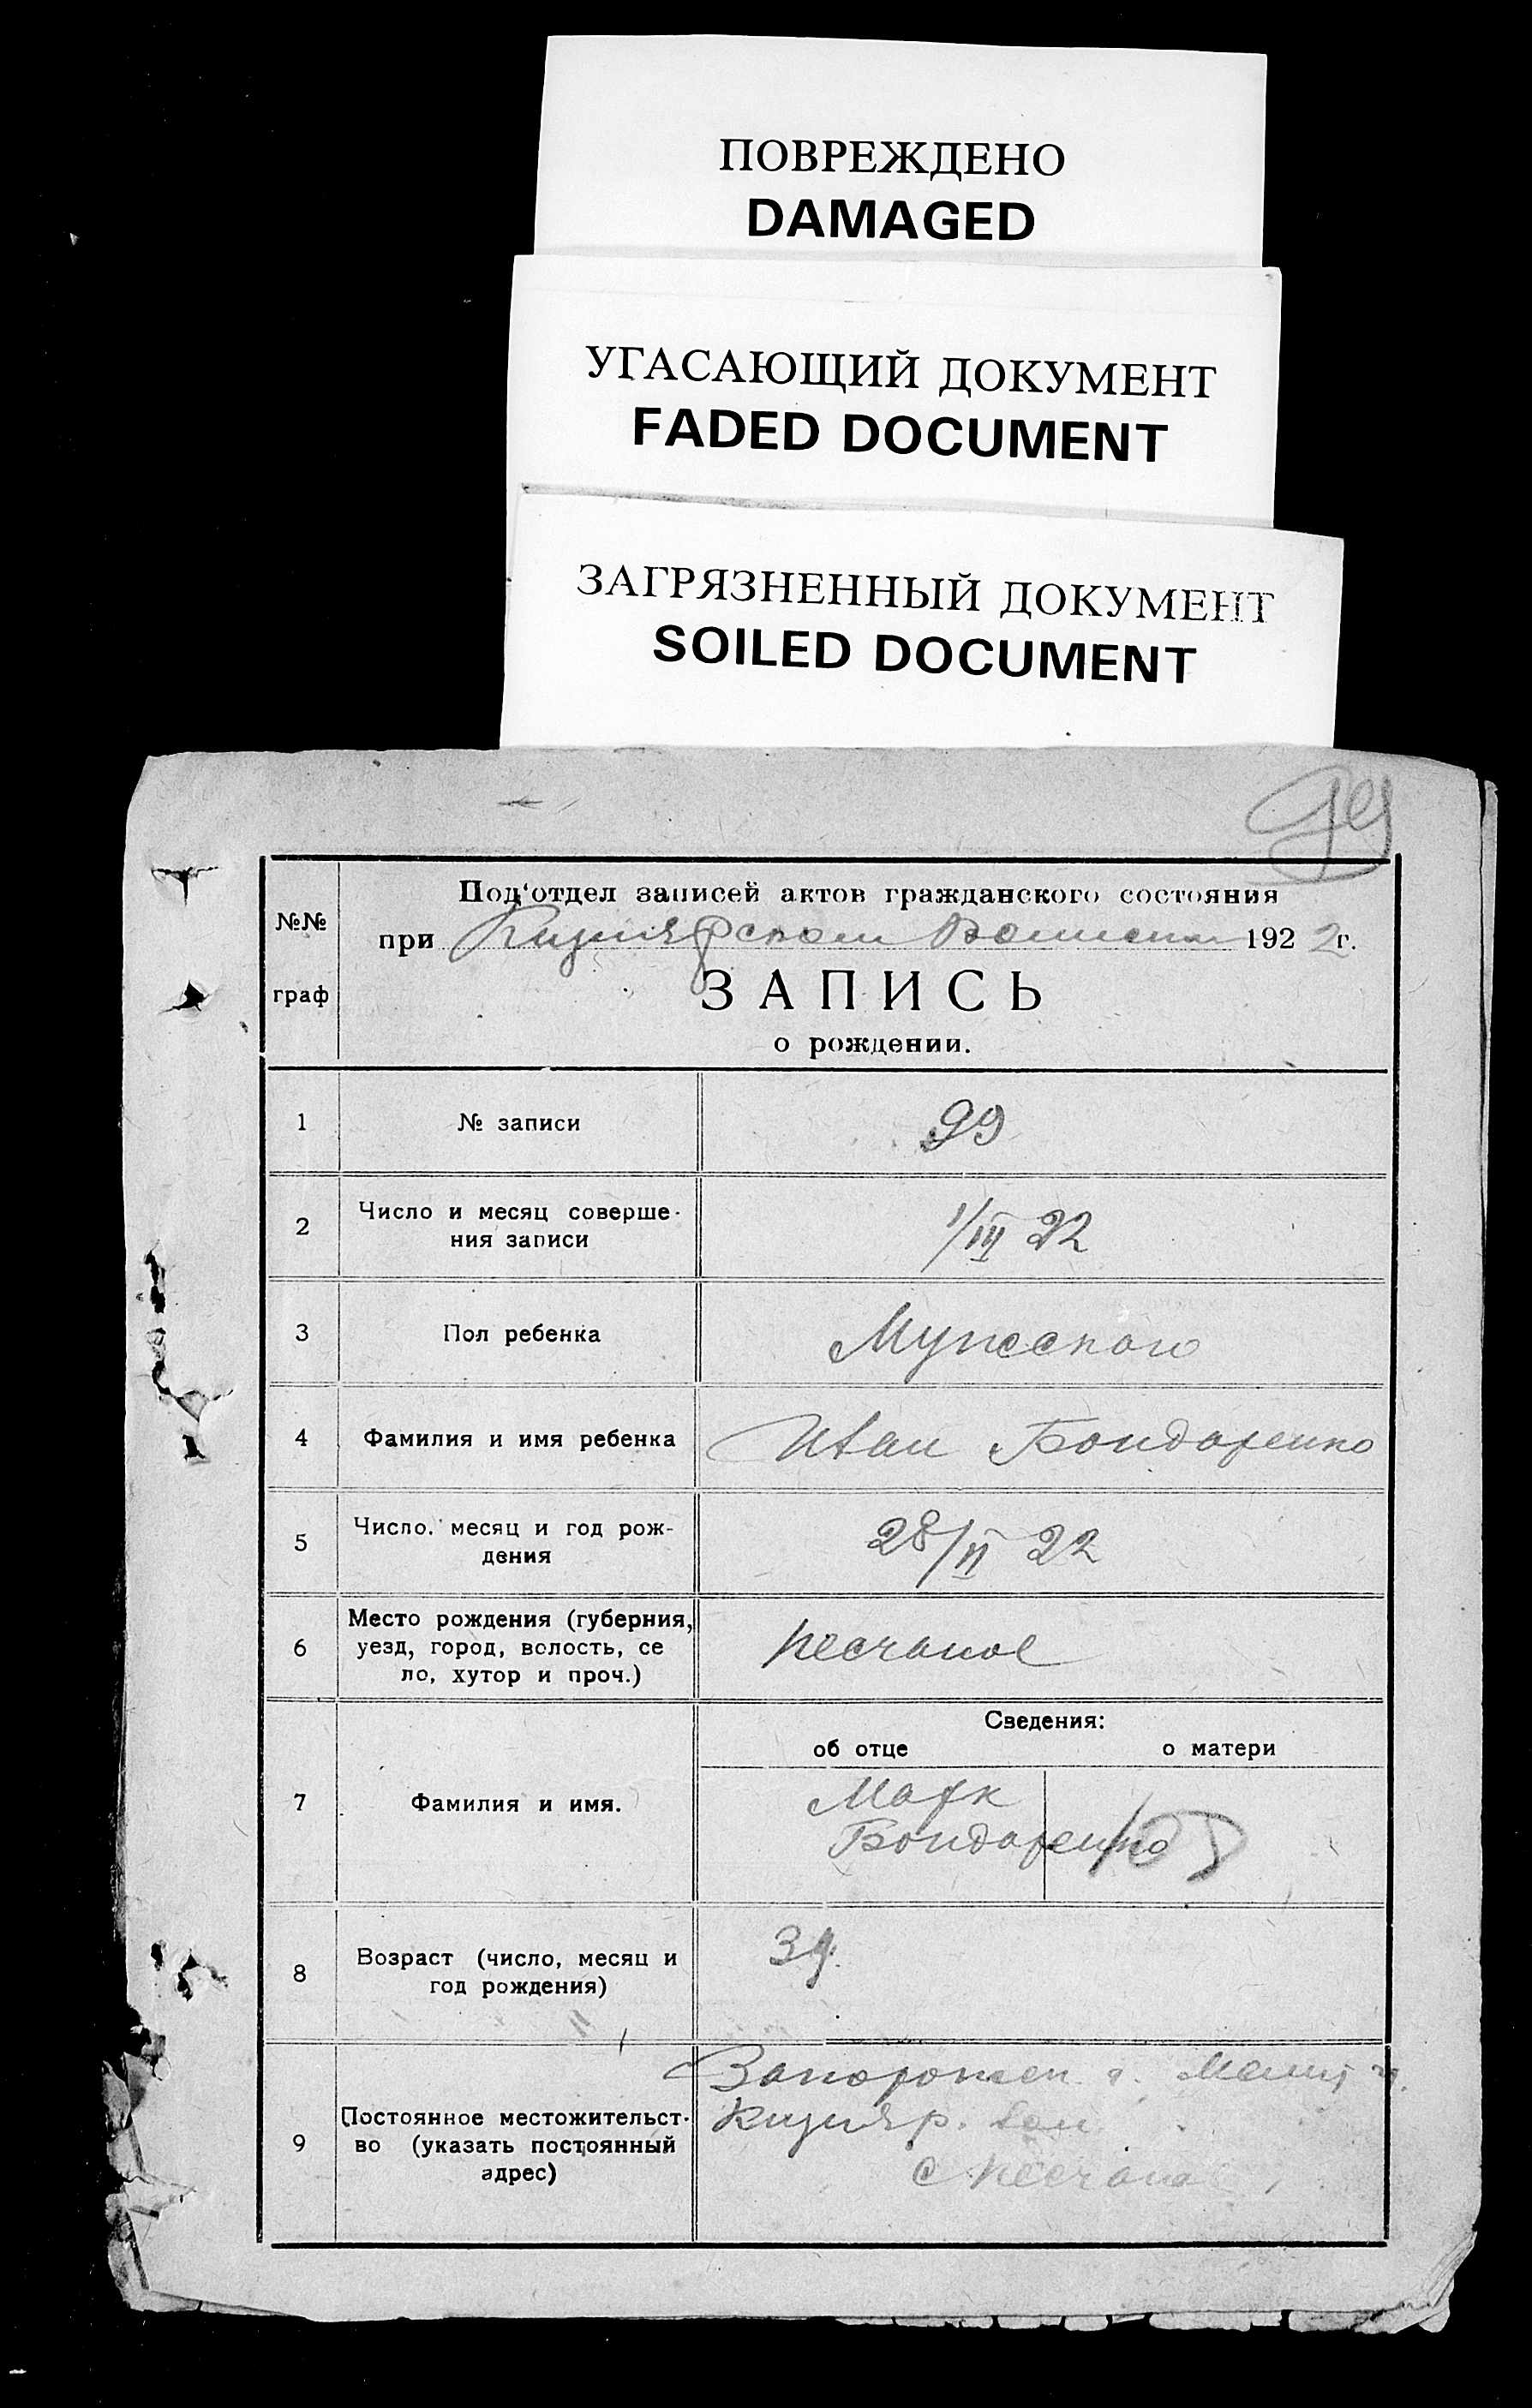 ПОВРЕЖДЕНО
DAMAGED
УГАСАЮЩИЙ ДОКУМЕНТ
FADED DOCUMENT
ЗАГРЯЗНЕННЫЙ ДОКУМЕНТ
SOILED DOCUMENT
№№ граф
Под‘отдел записей актов гражданского состояния
при Кизиярском 1922г.
ЗАПИСЬ
о рождении.
1 № записи 99
2 Число и месяц соверше-
ния записи 1/III 22
3 Пол ребенка Мужского
4 Фамилия и имя ребенка Иван Бондаренко
5 Число. месяц и год рож-
дения 28/II 22
6 Место рождения (губерния,
уезд, город, волость, се
ло, хутор и проч.) песчаное
Сведения:
об отце о матери
7 Фамилия и имя. Марк
Бондаренко
8 Возраст (число, месяц и
год рождения)
9 Постоянное местожительст-
во (указать постоянный
адрес)
Запорожск г. Мелит у.
Кизияр. вол
с песчаное